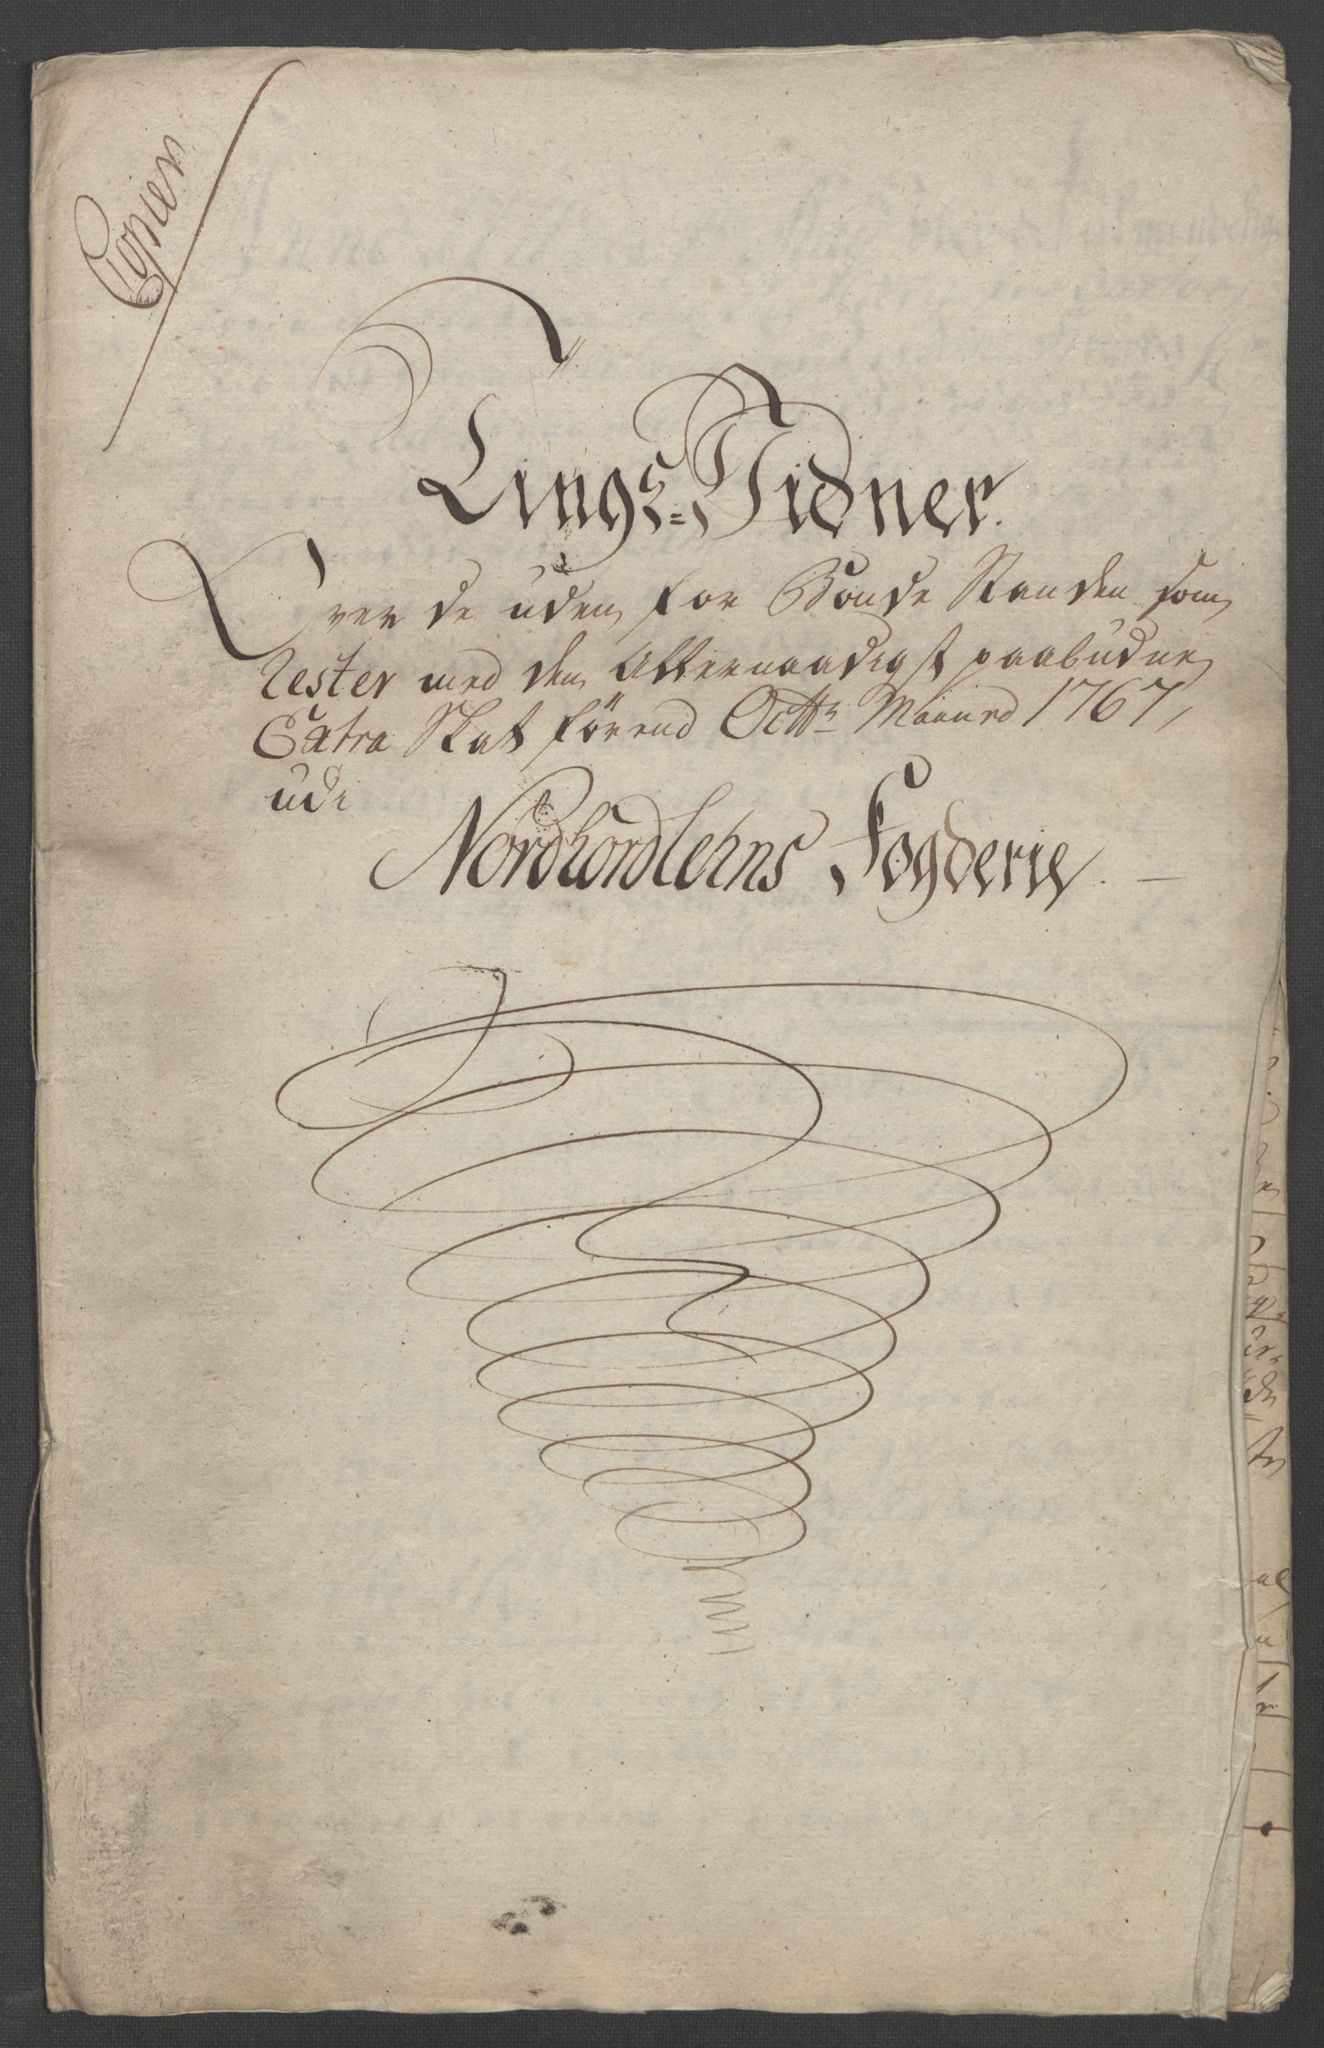 Copier
Tings-Vidner.
Over de uden for Bonde Standen som
Rester med den Allernaadigst paabudne
Extra Skatførend Octbr Maaned 1767,
udi
Nordhordlehns Fogderie.